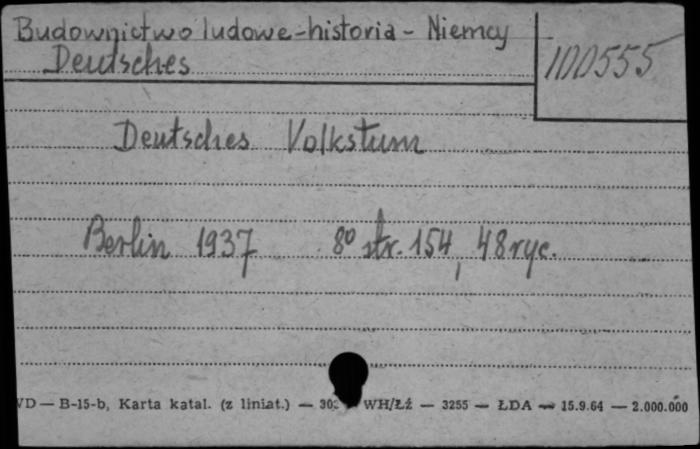 Budownictwo ludowe - historia - Niemcy
100555
Deutsches
Deutsches Volkstum
Berlin 1937 8º str. 154, 48 ryc.
VD — B-15-b, Karta katal. (z liniat.) — WH/Łź — 3255 — ŁDA — 15.9.64 — 2.000.000